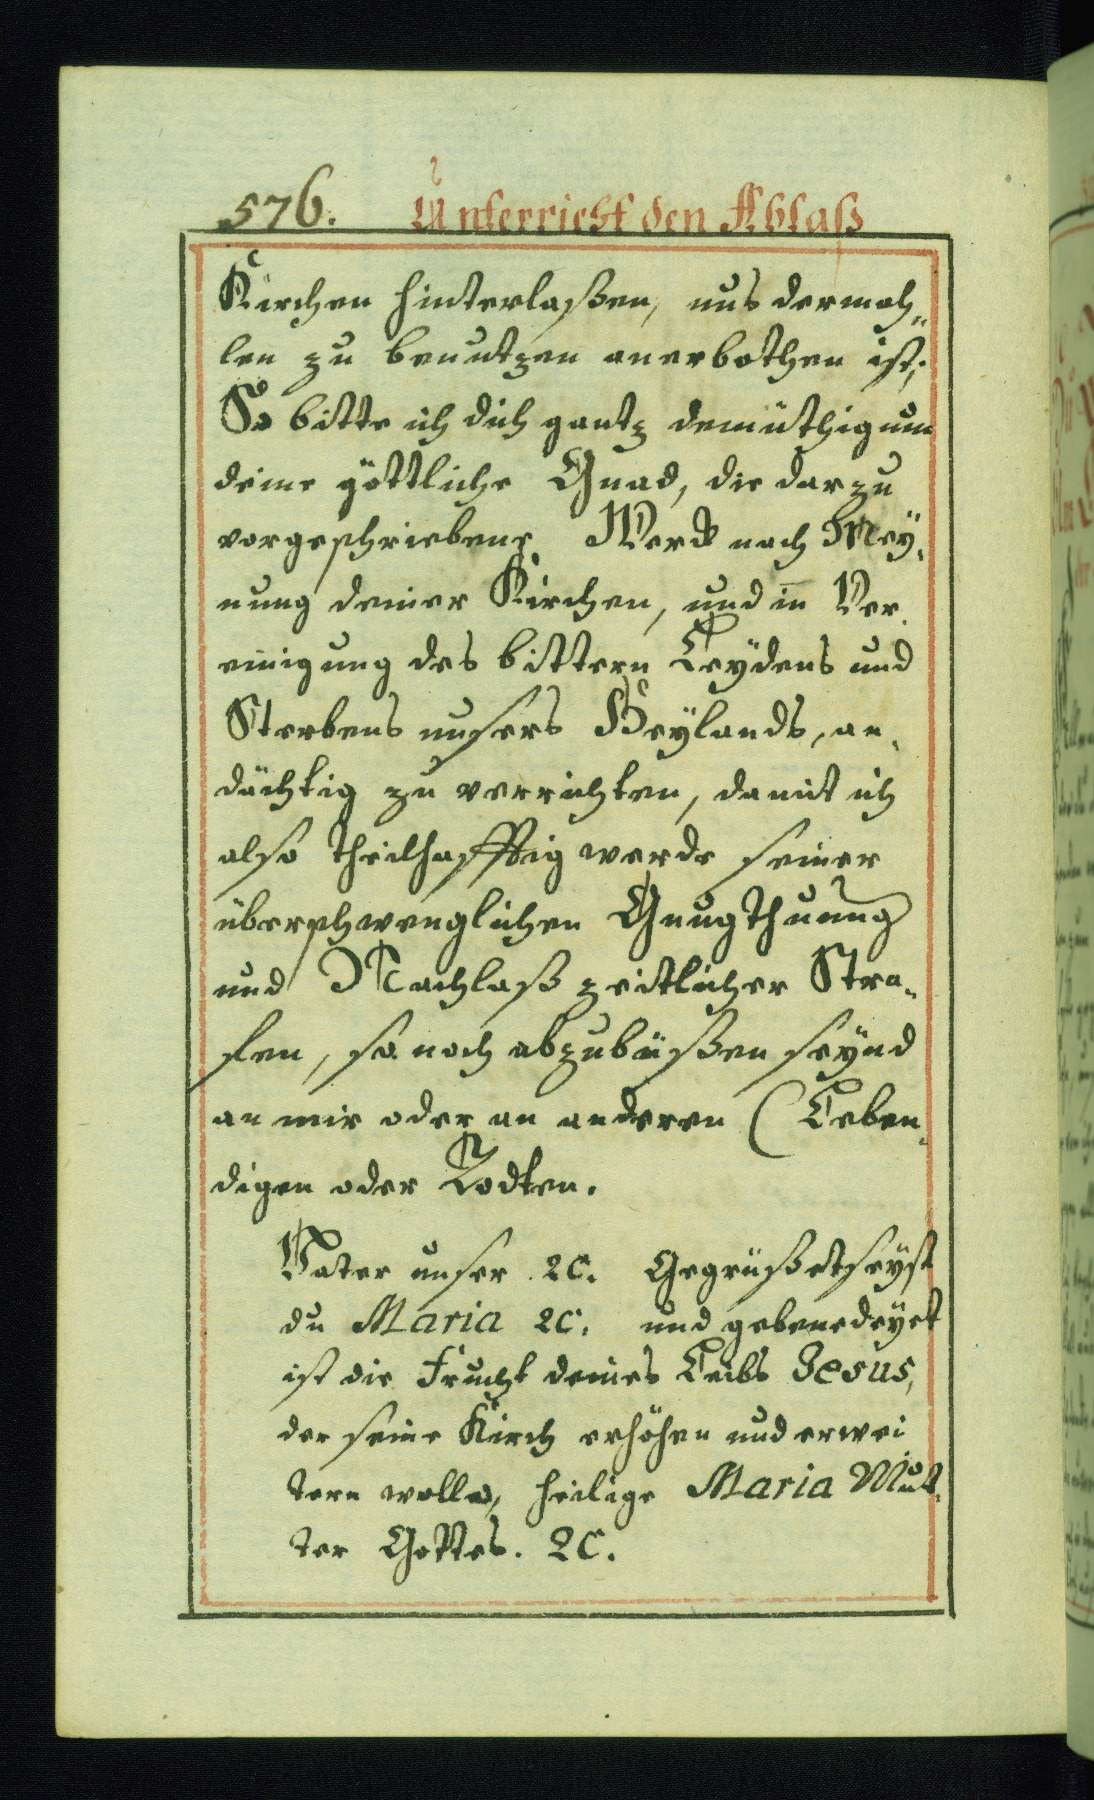 576. Unterricht den Ablaß
Kirchen hinterlaßen, uns dermah„
len zu benutzen anerbothen ist;
So bitte ich dich gantz demüthig um
deine göttliche Gnad, die darzu
vorgeschriebene Werck nach Mey„
nung deiner Kirchen, und in Ver„
einigung des bittern Leydens und
Sterbens unsers Heylands, an„
dächtig zu verrichten, damit ich
also theilhafftig werde seiner
überschwenglichen Gnugthuung
und Nachlaß zeitlicher Stra„
fen, so noch abzubüßen seynd
an mir oder an anderen (Leben„
digen oder Todten.
Vater unser. 2c. Gegrüßet seyst
du Maria 2c. und gebenedeyet
ist die Frucht deines Leibs Jesus,
der seine Kirch erhöhen und erwei
tern wolle, heilige Maria Mut„
ter Gottes. 2c.